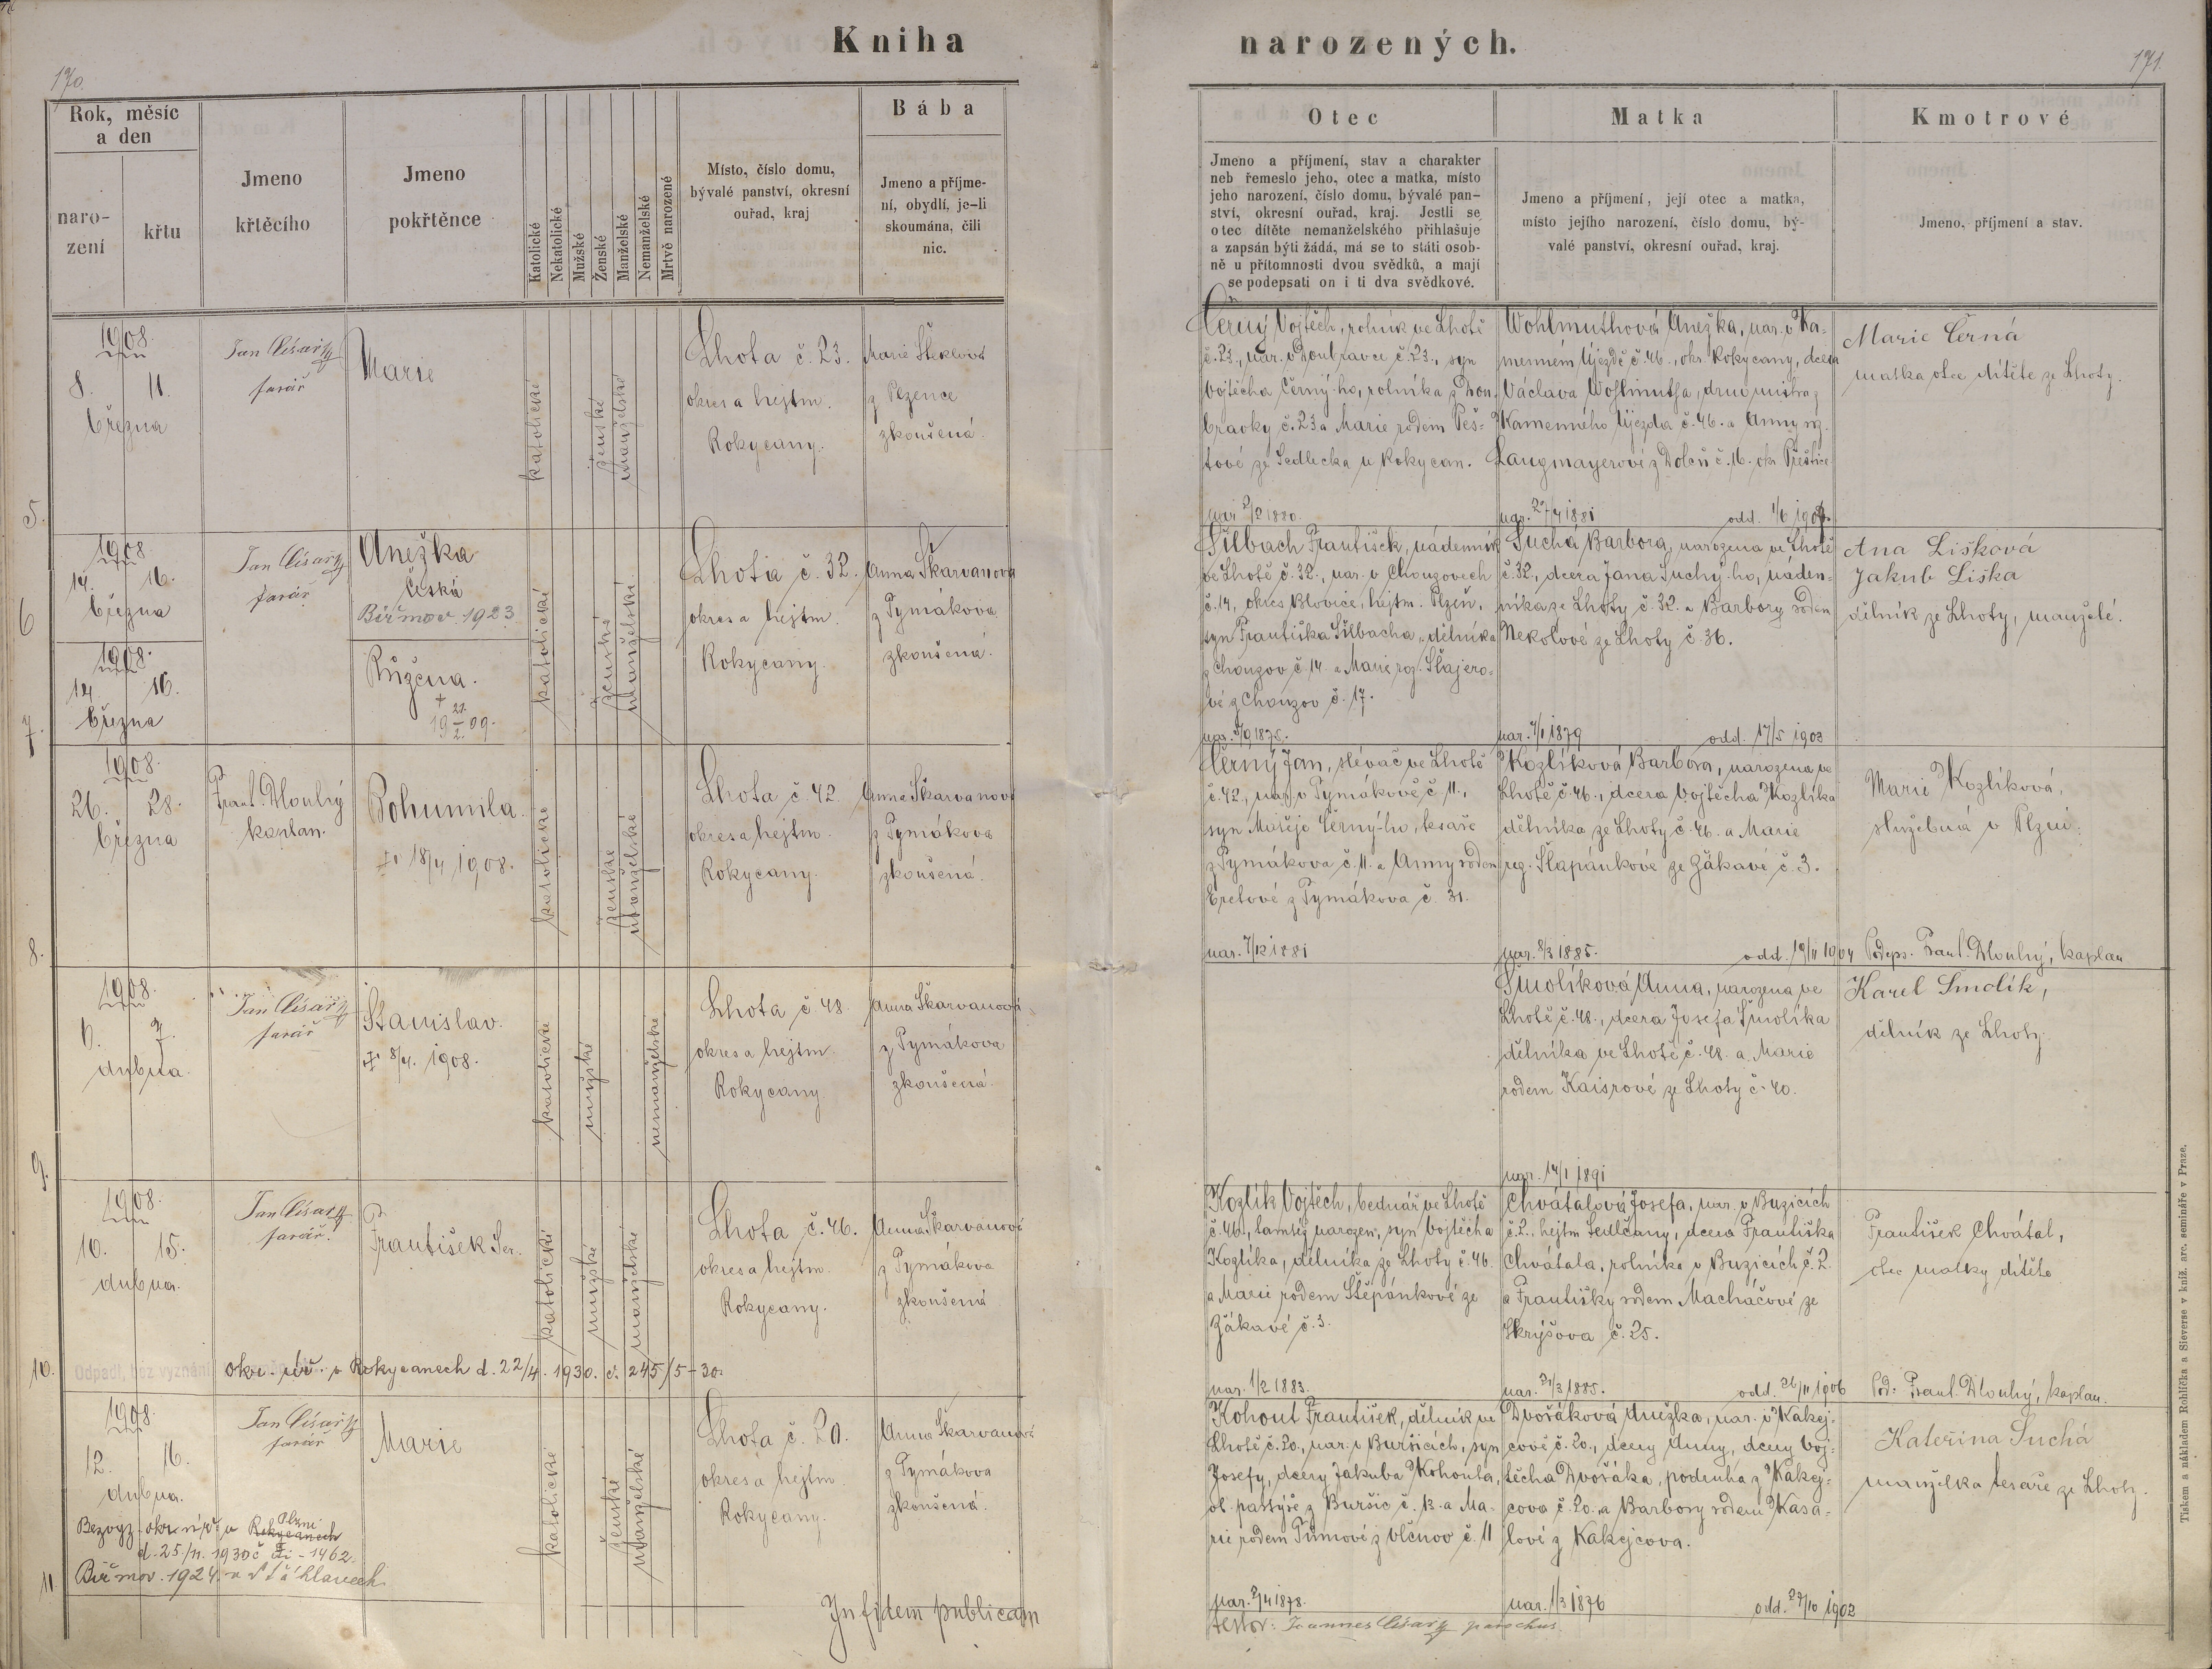 Kniha narozených.
170.
171.
Rok, měsíc
a den
naro-
zení
křtu
Jmeno
křtěcího
Jmeno
pokřtěnce
Katolické
Nekatolické
Mužské
Ženské
Manželské
Nemanželské
Mrtvě narozené
Místo, číslo domu,
bývalé panství, okresní
ouřad, kraj
Bába
Jmeno a příjme-
ní, obydlí, je-li
skoumána, čili
nic.
Otec
Jmeno a příjmení, stav a charakter
neb řemeslo jeho, otec a matka, místo
jeho narození, číslo domu, bývalé pan-
ství, okresní ouřad, kraj. Jestli se
otec dítěte nemanželského přihlašuje
a zapsán býti žádá, má se to státi osob-
ně u přítomnosti dvou svědků, a mají
se podepsati on i ti dva svědkové.
Matka
Jmeno a příjmení, její otec a matka,
místo jejího narození, číslo domu, bý-
valé panství, okresní ouřad, kraj.
Kmotrové
Jmeno, příjmení a stav.
5.
1908
8. 11.
března
Jan Císař
farář
Marie
katolické
ženské
manželské
Lhota č. 23.
okres a hejtm.
Rokycany.
Marie Šteklová
z Plzence
zkoušená.
Černý Vojtěch, rolník ve Lhotě
č. 23., nar. v Doubravce č. 23., syn
Vojtěcha Černý-ho, rolníka z Dou-
bravky č. 23 a Marie rodem Peš-
tové ze Sedlecka u Rokycan.
1880.
Wohlmuthová Anežka, nar. v Ka-
menném Újezdě č. 46., okr. Rokycany, dcera
Václava Wohlmutha, z
Kamenného Újezda č. 46. a Anny roz.
Langmayerové z Dolců č. 16. okr. Přeštice
nar. 27/4 1881 odd. 1/6
Marie Černá
matka otce dítěte ze Lhoty.
6
1908
14. 16.
března
Jan Císař
farář
Anežka
Česká
Biřmov. 1923
katolické
ženské
manželské
Lhota č. 32.
okres a hejtm.
Rokycany.
Anna Škarvanová
z Tymákova
zkoušená.
7.
1908.
14. 16.
března
Růžena.
+ 21.
19 2. 09.
Šilbach František, nádenník
ve Lhotě č. 32., nar. v Chouzovech
č. 14, okres Blovice, hejtm. Plzeň,
syn Františka Šilbacha, dělníka
z Chouzov č. 14. a Marie roz. Šlajero-
vé z Chouzov č. 17.
Suchá Barbora, narozena ve Lhotě
č. 32., dcera Jana Suchý-ho, náden-
níka ze Lhoty č. 32. a Barbory rodem
Nekolové ze Lhoty č. 36.
nar. 4/1 1879 odd. 17/5 1903
Ana Lišková
Jakub Liška
dělník ze Lhoty, manželé.
8.
1908.
26. 28.
března
Frant. Dlouhý
kaplan.
Bohumila.
18/4 1908.
katolické
ženské
manželské
Lhota č. 42
okres a hejtm.
Rokycany.
Anna Škarvanová
z Tymákova
zkoušená.
Černý Jan, slévač ve Lhotě
č. 42., nar. v Tymákově č. 11.,
syn Matěje Černý-ho, tesaře
z Tymákova č. 11. a Anny rodem
Eretové z Tymákova č. 31.
nar. 7/12 1881
Kozlíková Barbora, narozena ve
Lhotě č. 46., dcera Vojtěcha Kozlíka
dělníka ze Lhoty č. 46. a Marie
roz. Šlapánkové ze Žákavé č. 3.
nar. 8/3 1885. odd. 19/11 1904
Marie Kozlíková,
služebná v Plzni.
Podeps. Frant. Dlouhý, kaplan
9.
1908.
6. 7.
dubna.
Jan Císař
farář
Stanislav.
8/4. 1908.
katolické
mužské
nemanželské
Lhota č 48.
okres a hejtm.
Rokycany
Anna Škarvanová
z Tymákova
zkoušená.
Smolíková Anna, narozena ve
Lhotě č. 48., dcera Josefa Smolíka
dělníka ve Lhotě č. 48. a Marie
rodem Kaisrové ze Lhoty č. 40.
nar. 14/1 1891
Karel Smolík,
dělník ze Lhoty.
10.
1908.
10. 15.
dubna.
Jan Císař
farář.
František Ser.
katolické
mužské
manželské
Lhota č. 46.
okres a hejtm.
Rokycany.
Anna Škarvanová
z Tymákova
zkoušená
Odpadl, bez vyznání okr. úř. v Rokycanech d. 22/4. 1930. č. 245/5-30.
Kozlík Vojtěch, bednář ve Lhotě
č. 46., tamtéž narozen, syn Vojtěcha
Kozlíka, dělníka ze Lhoty č. 46.
a Marie rodem Štěpánkové ze
Žákavé č. 3.
nar. 1/2 1883.
Chvátalová Josefa, nar. v Buzicích
č. 2., hejtm Sedlčany, dcera Františka
Chvátala, rolníka v Buzicích č. 2.
a Františky rodem Macháčové ze
Skrýšova č. 25.
nar. 21/3 1885. odd. 26/11 1906
František Chvátal,
otec matky dítěte
Pod. Frant. Dlouhý, kaplan.
11.
1908.
12. 16.
dubna.
Jan Císař
farář
Marie
katolické
ženské
manželské
Lhota č. 20.
okres a hejtm
Rokycany.
Anna Škarvanová
z Tymákova
zkoušená.
Bezvyz. okr. úř. v Rokycanech Plzni
d. 25/11. 1930 č. 1462.
Biřmov. 1924. v Šťáhlavech
Kohout František, dělník ve
Lhotě č. 20., nar. v Buršicích, syn
Josefy, dcery Jakuba Kohouta,
ob. pastýře z Buršic č. 13. a Ma-
rie rodem Tůmové z Vlčnov č. 11
nar. 2/4 1878.
Dvořáková Anežka, nar. v Kakej-
cově č. 20., dcery Anny, dcery Voj-
těcha Dvořáka, podruha z Kakej-
cova č. 20. a Barbory rodem Kasa-
lové z Kakejcova.
nar. 1/3 1876 odd. 27/10 1902
Kateřina Suchá
manželka tesaře ze Lhoty.
In fidem publicam
testor: Joannes Císař parochus.
Tiskem a nákladem Rohlíčka a Sieverse v kníž. arc. semináře v Praze.